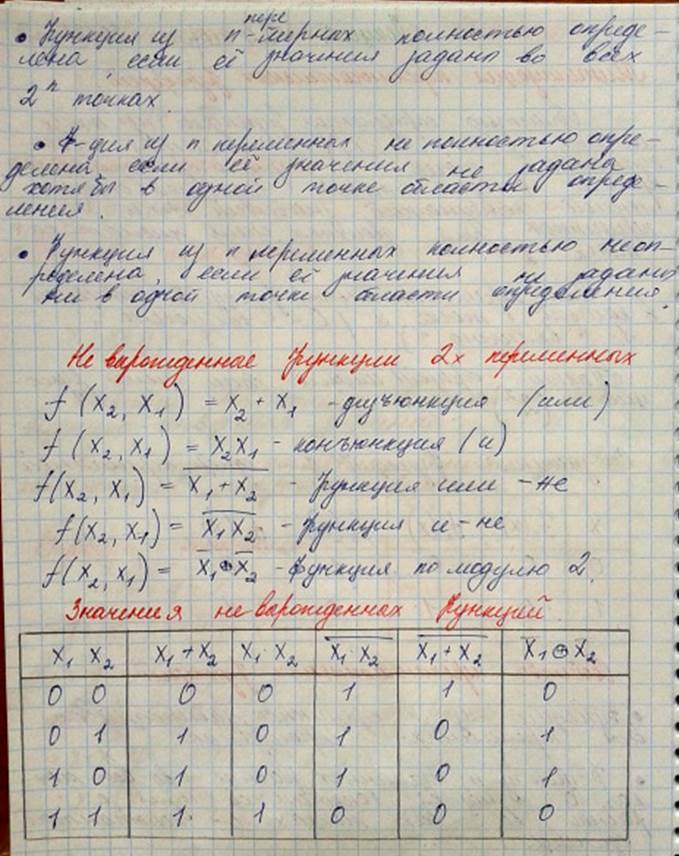 пере
• Функция из n-менных полностью опреде-
лена, если её значения заданы во всех
2ⁿ точках.
• Ф-ция из n переменных не полностью опре-
делена, если её значения не заданы
хотя бы в одной точке области опреде-
ления.
• Функция из n переменных полностью неоп-
ределена, если её значения не заданы
ни в одной точке области определения.
Не вырожденные функции 2х переменных
f (x₂, x₁) = x₂ + x₁ - дизъюнкция (или)
f (x₂, x₁) = x₂x₁ - конъюнкция (и)
f(x₂, x₁) = \overline{x₁ + x₂} - функция или -не
f(x₂, x₁) = \overline{x₁ x₂} - функция и-не
f(x₂, x₁) = x̅₁ ⊕ x̅₂ - функция по модулю 2.
Значения не вырожденных функций
x₁ x₂ x₁ + x₂ x₁ · x₂ \overline{x₁ · x₂} \overline{x₁ + x₂} x̅₁ ⊕ x̅₂
0 0 0 0 1 1 0
0 1 1 0 1 0 1
1 0 1 0 1 0 1
1 1 1 1 0 0 0